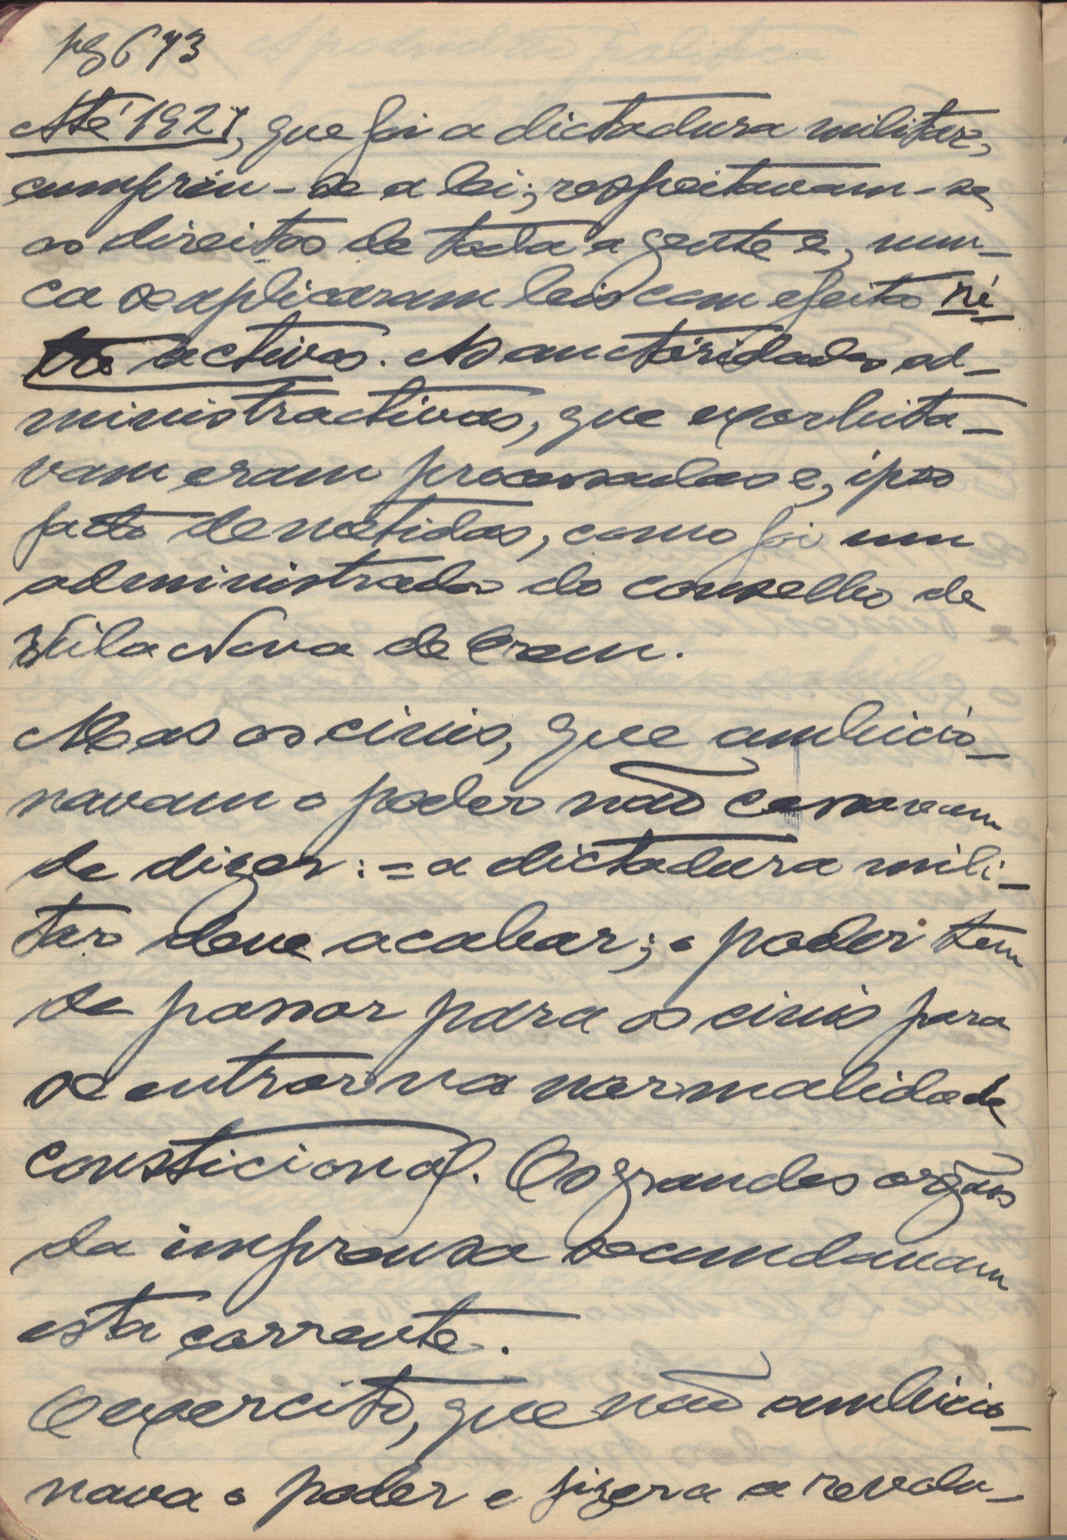 pg 673
Até 1927, que foi a dictadura militar,
cumpriu-se a lei; respeitavam-se
os direitos de toda a gente e, nun-
ca se aplicaram leis com efeito ré-
tro activos. As auctoridades ad-
ministractivas, que exorbita-
vam eram processadas e, ipso
facto demetidas, como foi um
administrador do conselho de
Vila Nova de Ourem.
Mas os civis, que ambicio-
navam o poder não cessavam
de dizer: = a dictadura mili-
tar deve acabar; o poder tem
de passar para os civis para
se entrar na normalidade
consticional. Os grandes orgãos
da imprensa secundavam
esta corrente.
O exercito, que não ambicio-
nava o poder e fizera a revolu-